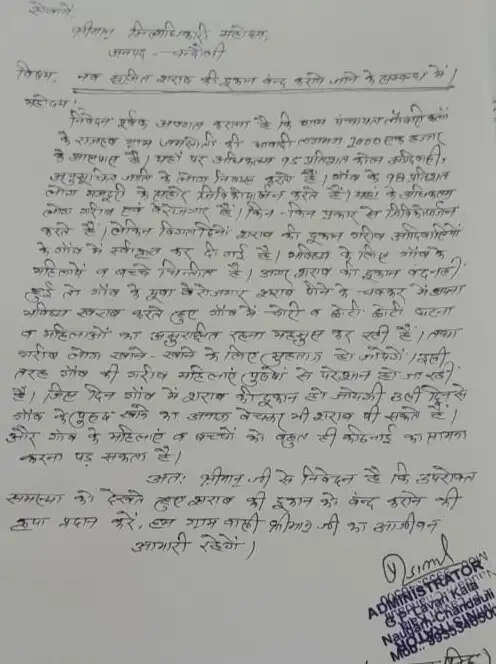 सेवामें,
श्रीमान जिलाधिकारी महोदय,
जनपद - चन्दौली
विषय, नव सृजित शराब की दुकान बन्द कराये जाने के सम्बन्ध में।
महोदय,
निवेदन पूर्वक अवगत कराना है कि ग्राम पंचायत लौवारी कलाँ
के राजस्व ग्राम की आबादी लगभग 2000 एक हजार
के आसपास है। यहाँ पर अधिकतम 95 प्रतिशत कोल आदिवासी,
अनुसूचित जाति के लोग निवास करते हैं। गाँव के 98 प्रतिशत
लोग मजदूरी के सहारे जिविकोपार्जन करते हैं। यहां के अधिकतम
लोग गरीब एवं बेरोजगार हैं। किन-किन प्रकार से जिविकोपार्जन
करते हैं। लेकिन विगत दिनों शराब की दुकान गरीब आदिवासियों
के गाँव में स्वीकृत कर दी गई है। भविष्य के लिए गाँव के
महिलाएं व बच्चे चिन्तित हैं। अगर शराब की दुकान बन्द नहीं
हुई तो गाँव के युवा बेरोजगार शराब पीने के चक्कर में अपना
भविष्य खराब करते हुए गाँव में चोरी व करना
व महिलाओं का असुरक्षित रहना महसूस कर रही हैं। तथा
गरीब लोग खाने-खाने के लिए मुहताज हो जायेंगे। इसी
तरह गाँव की गरीब महिलाएं पुरुषों से परेशान हो जा रही
हैं। जिस दिन गाँव में शराब की दुकान हो जायेगी उसी दिन से
गाँव के पुरुष खाने का अनाज बेचकर भी शराब पी सकते हैं।
और गांव के महिलाएं व बच्चों को बहुत ही कठिनाई का सामना
करना पड़ सकता है।
अतः श्रीमान् जी से निवेदन है कि उपरोक्त
समस्या को देखते हुए शराब की दुकान को बन्द कराने की
कृपा प्रदान करें। हम ग्राम वासी श्रीमान् जी का आजीवन
आभारी रहेंगे।
ADMINISTRATOR
G.P. Lavari Kala
Naugarh-Chandauli